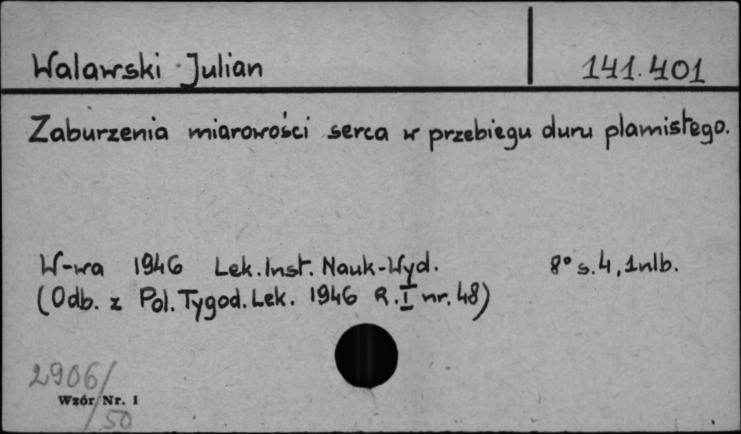 Walawski Julian 141.401
Zaburzenia miarowości serca w przebiegu duru plamistego.
W-wa 1946 Lek.Inst. Nauk-Wyd. 8° s.4, 1nlb.
(Odb. z Pol.Tygod.Lek. 1946 R.I nr.48)
2906/
Wzór Nr. 1
/50